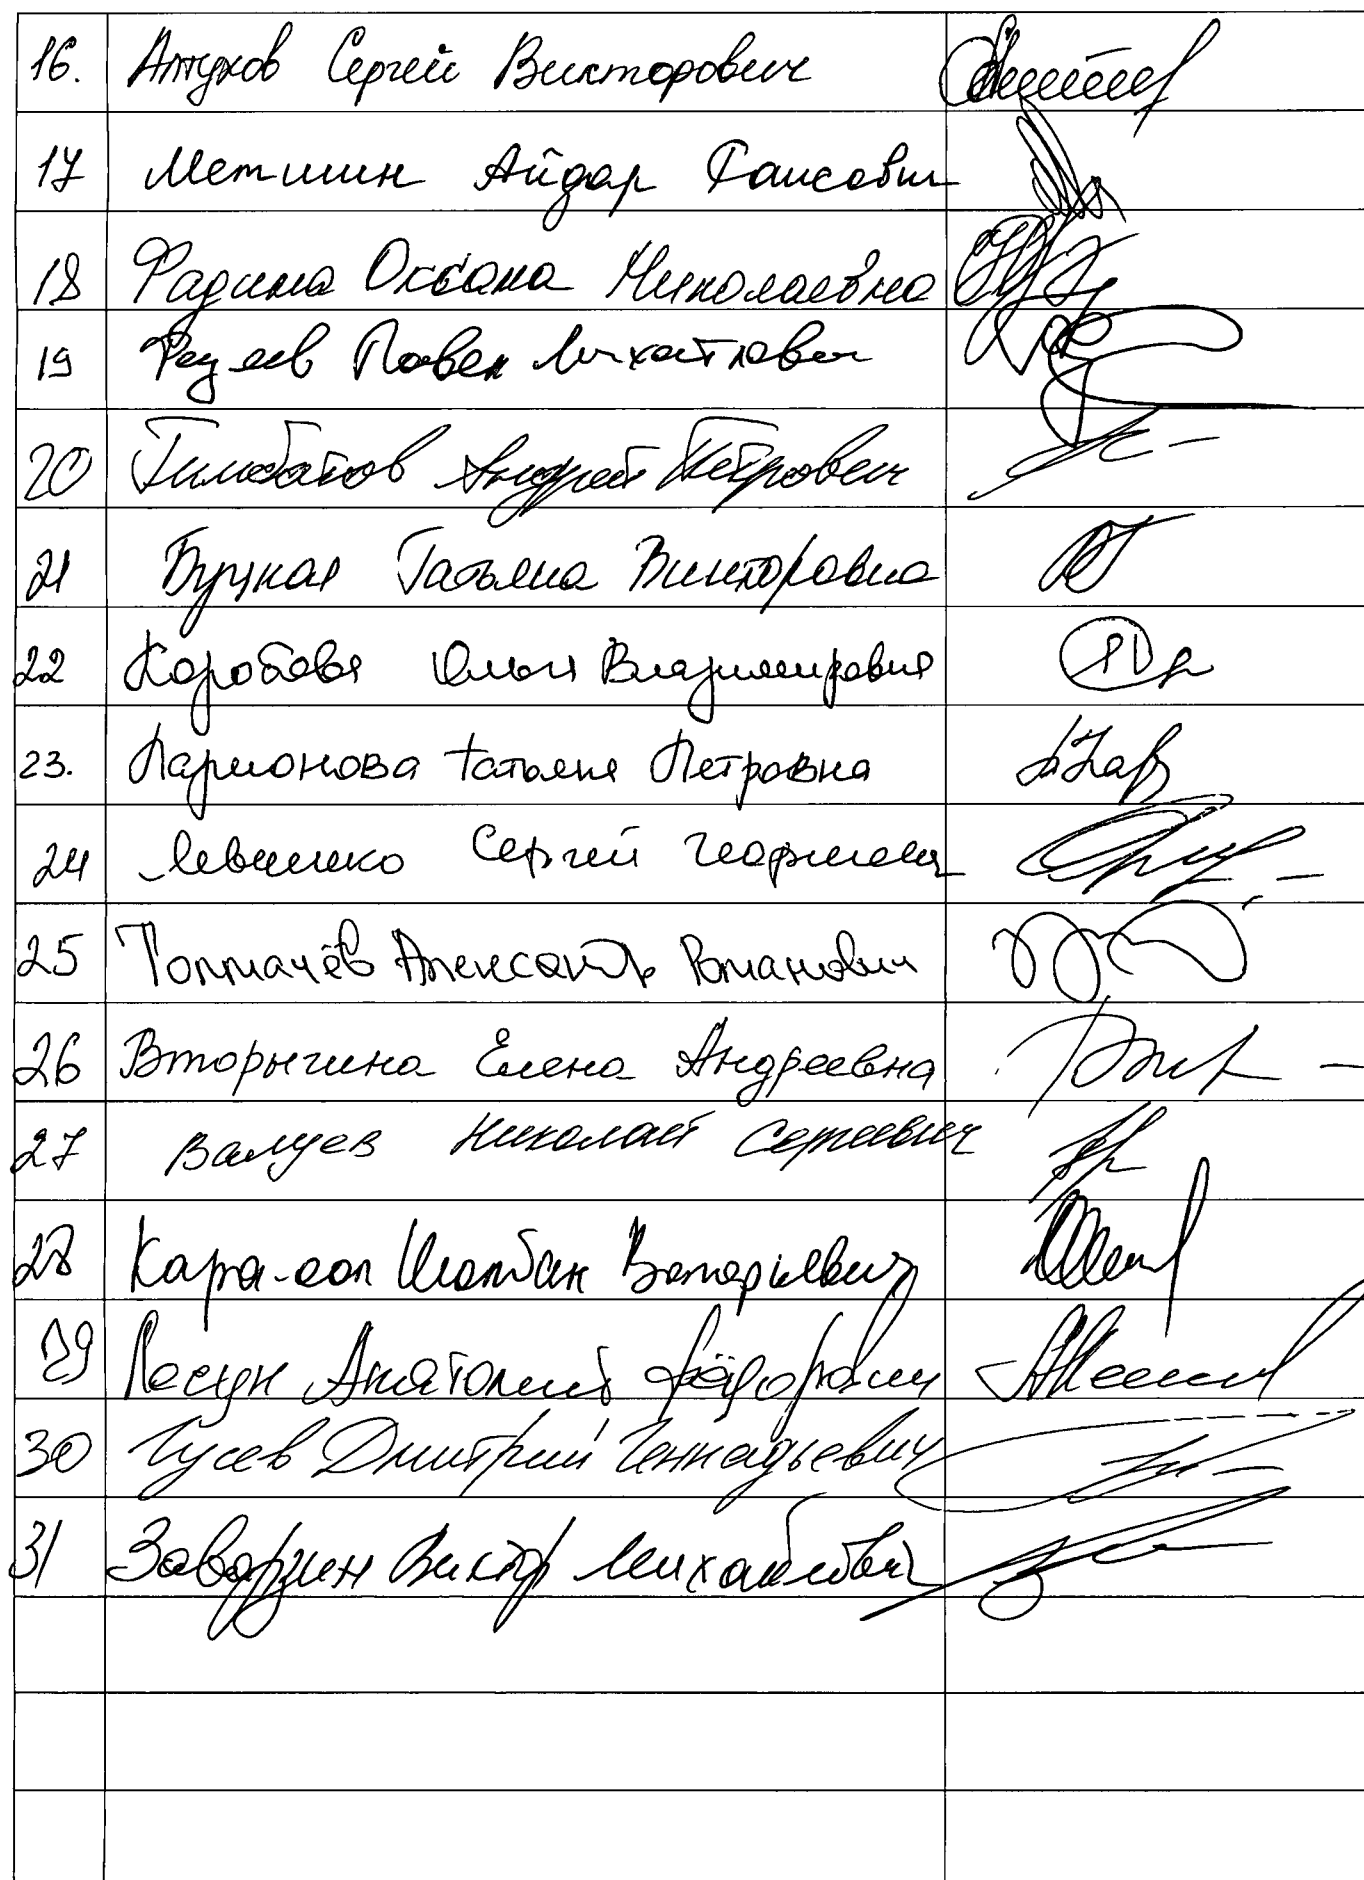 16. Алтухов Сергей Викторович
17 Метшин Айдар Раисович
18 Фадина Оксана Николаевна
19 Федяев Павел Михайлович
20 Гимбатов Андрей Петрович
21 Буцкая Татьяна Викторовна
22 Коробова Ольга Владимировна
23. Ларионова Татьяна Петровна
24 Левченко Сергей Георгиевич
25 Толмачёв Александр Романович
26 Вторыгина Елена Андреевна
27 Валуев Николай Сергеевич
28 Кара-оол Шолбан Валерьевич
29 Лесун Анатолий Фёдорович
30 Гусев Дмитрий Геннадьевич
31 Заварзин Виктор Михайлович